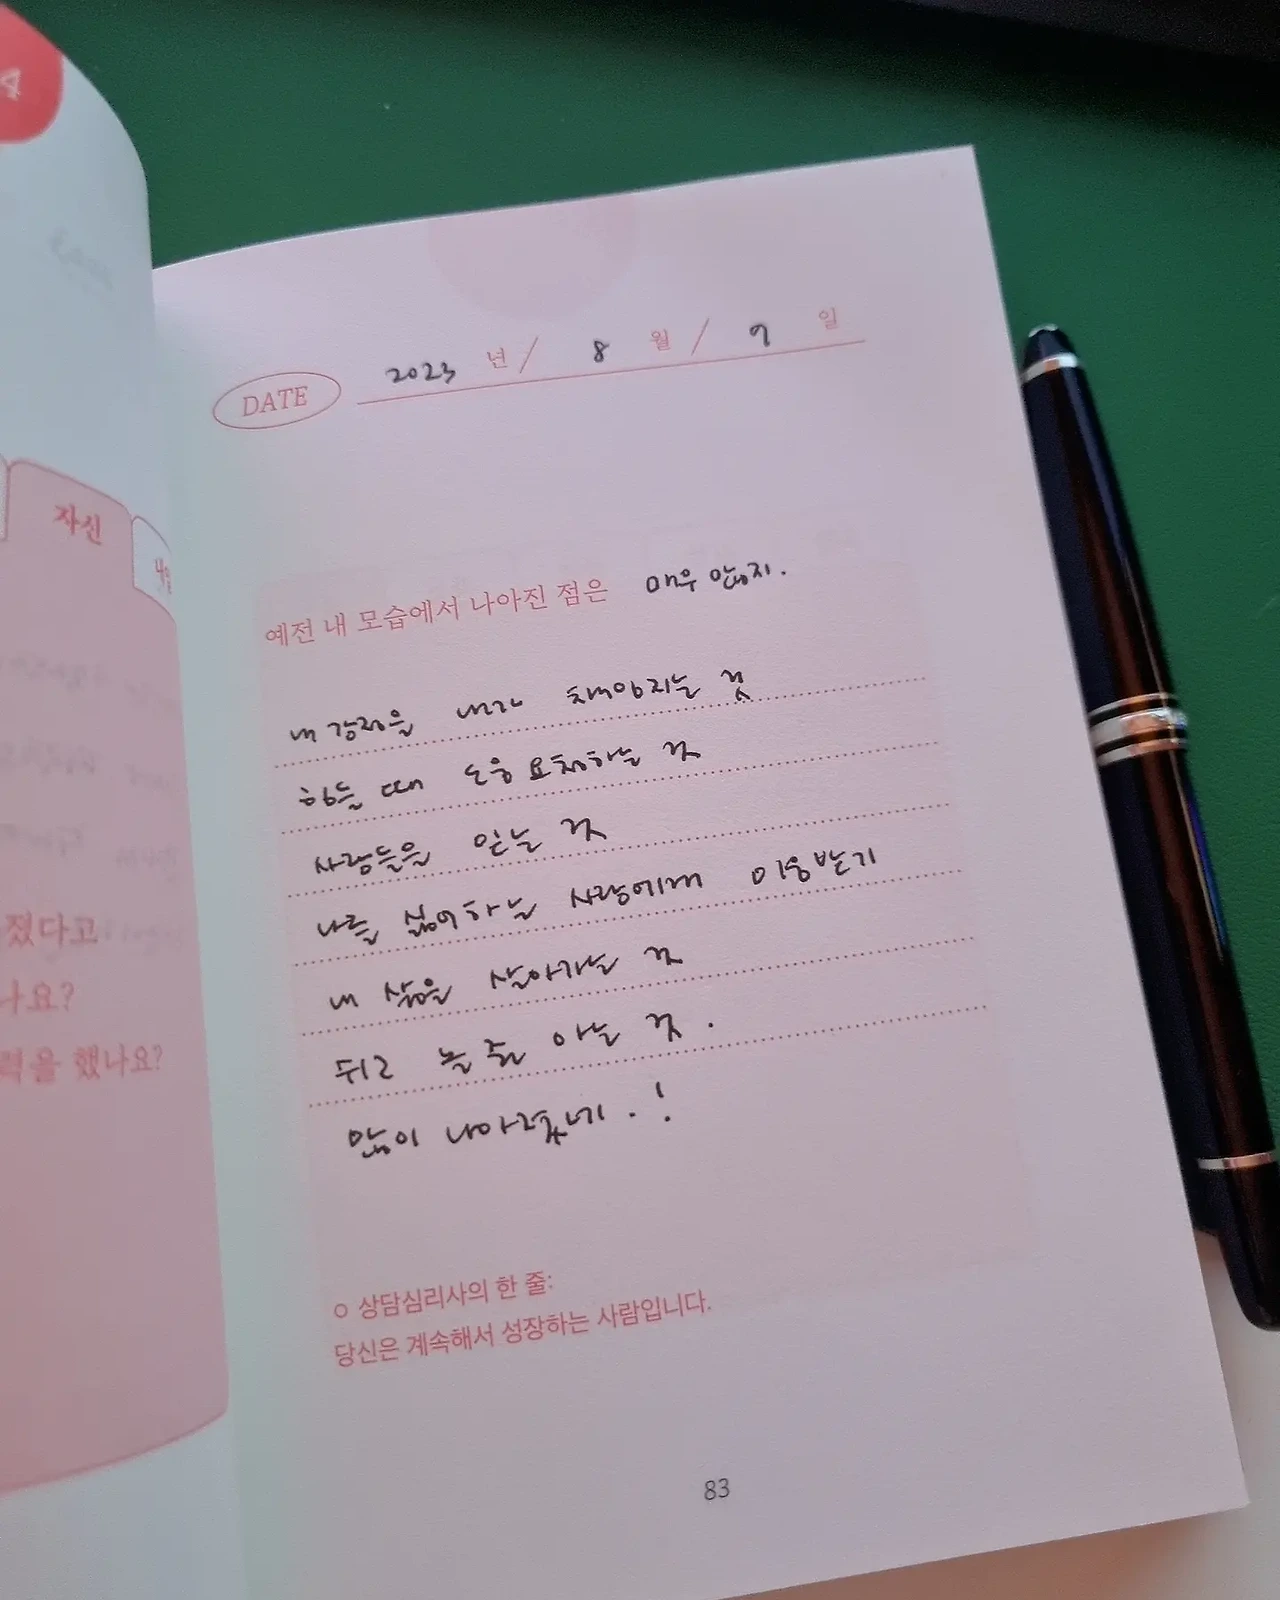 자신
졌다고
나요?
력을 했나요?
DATE 2023 년 / 8 월 / 9 일
예전 내 모습에서 나아진 점은 매우 많지.
내 감정을 내가 책임지는 것
힘들 때 도움 요청하는 것
사람들을 믿는 것
나를 싫어하는 사람에게 미움받기
내 삶을 살아가는 것
뒤로 놓을 줄 아는 것.
많이 나아졌네.!
ㅇ 상담심리사의 한 줄:
당신은 계속해서 성장하는 사람입니다.
83